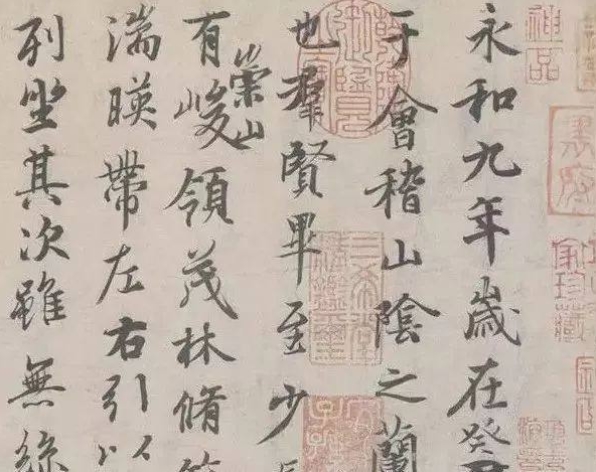 永和九年歲在癸
于會稽山陰之蘭
也羣賢畢至少
崇山
有峻領茂林脩
湍暎帶左右引以
列坐其次雖無絲
神品
三希堂
精鑒璽